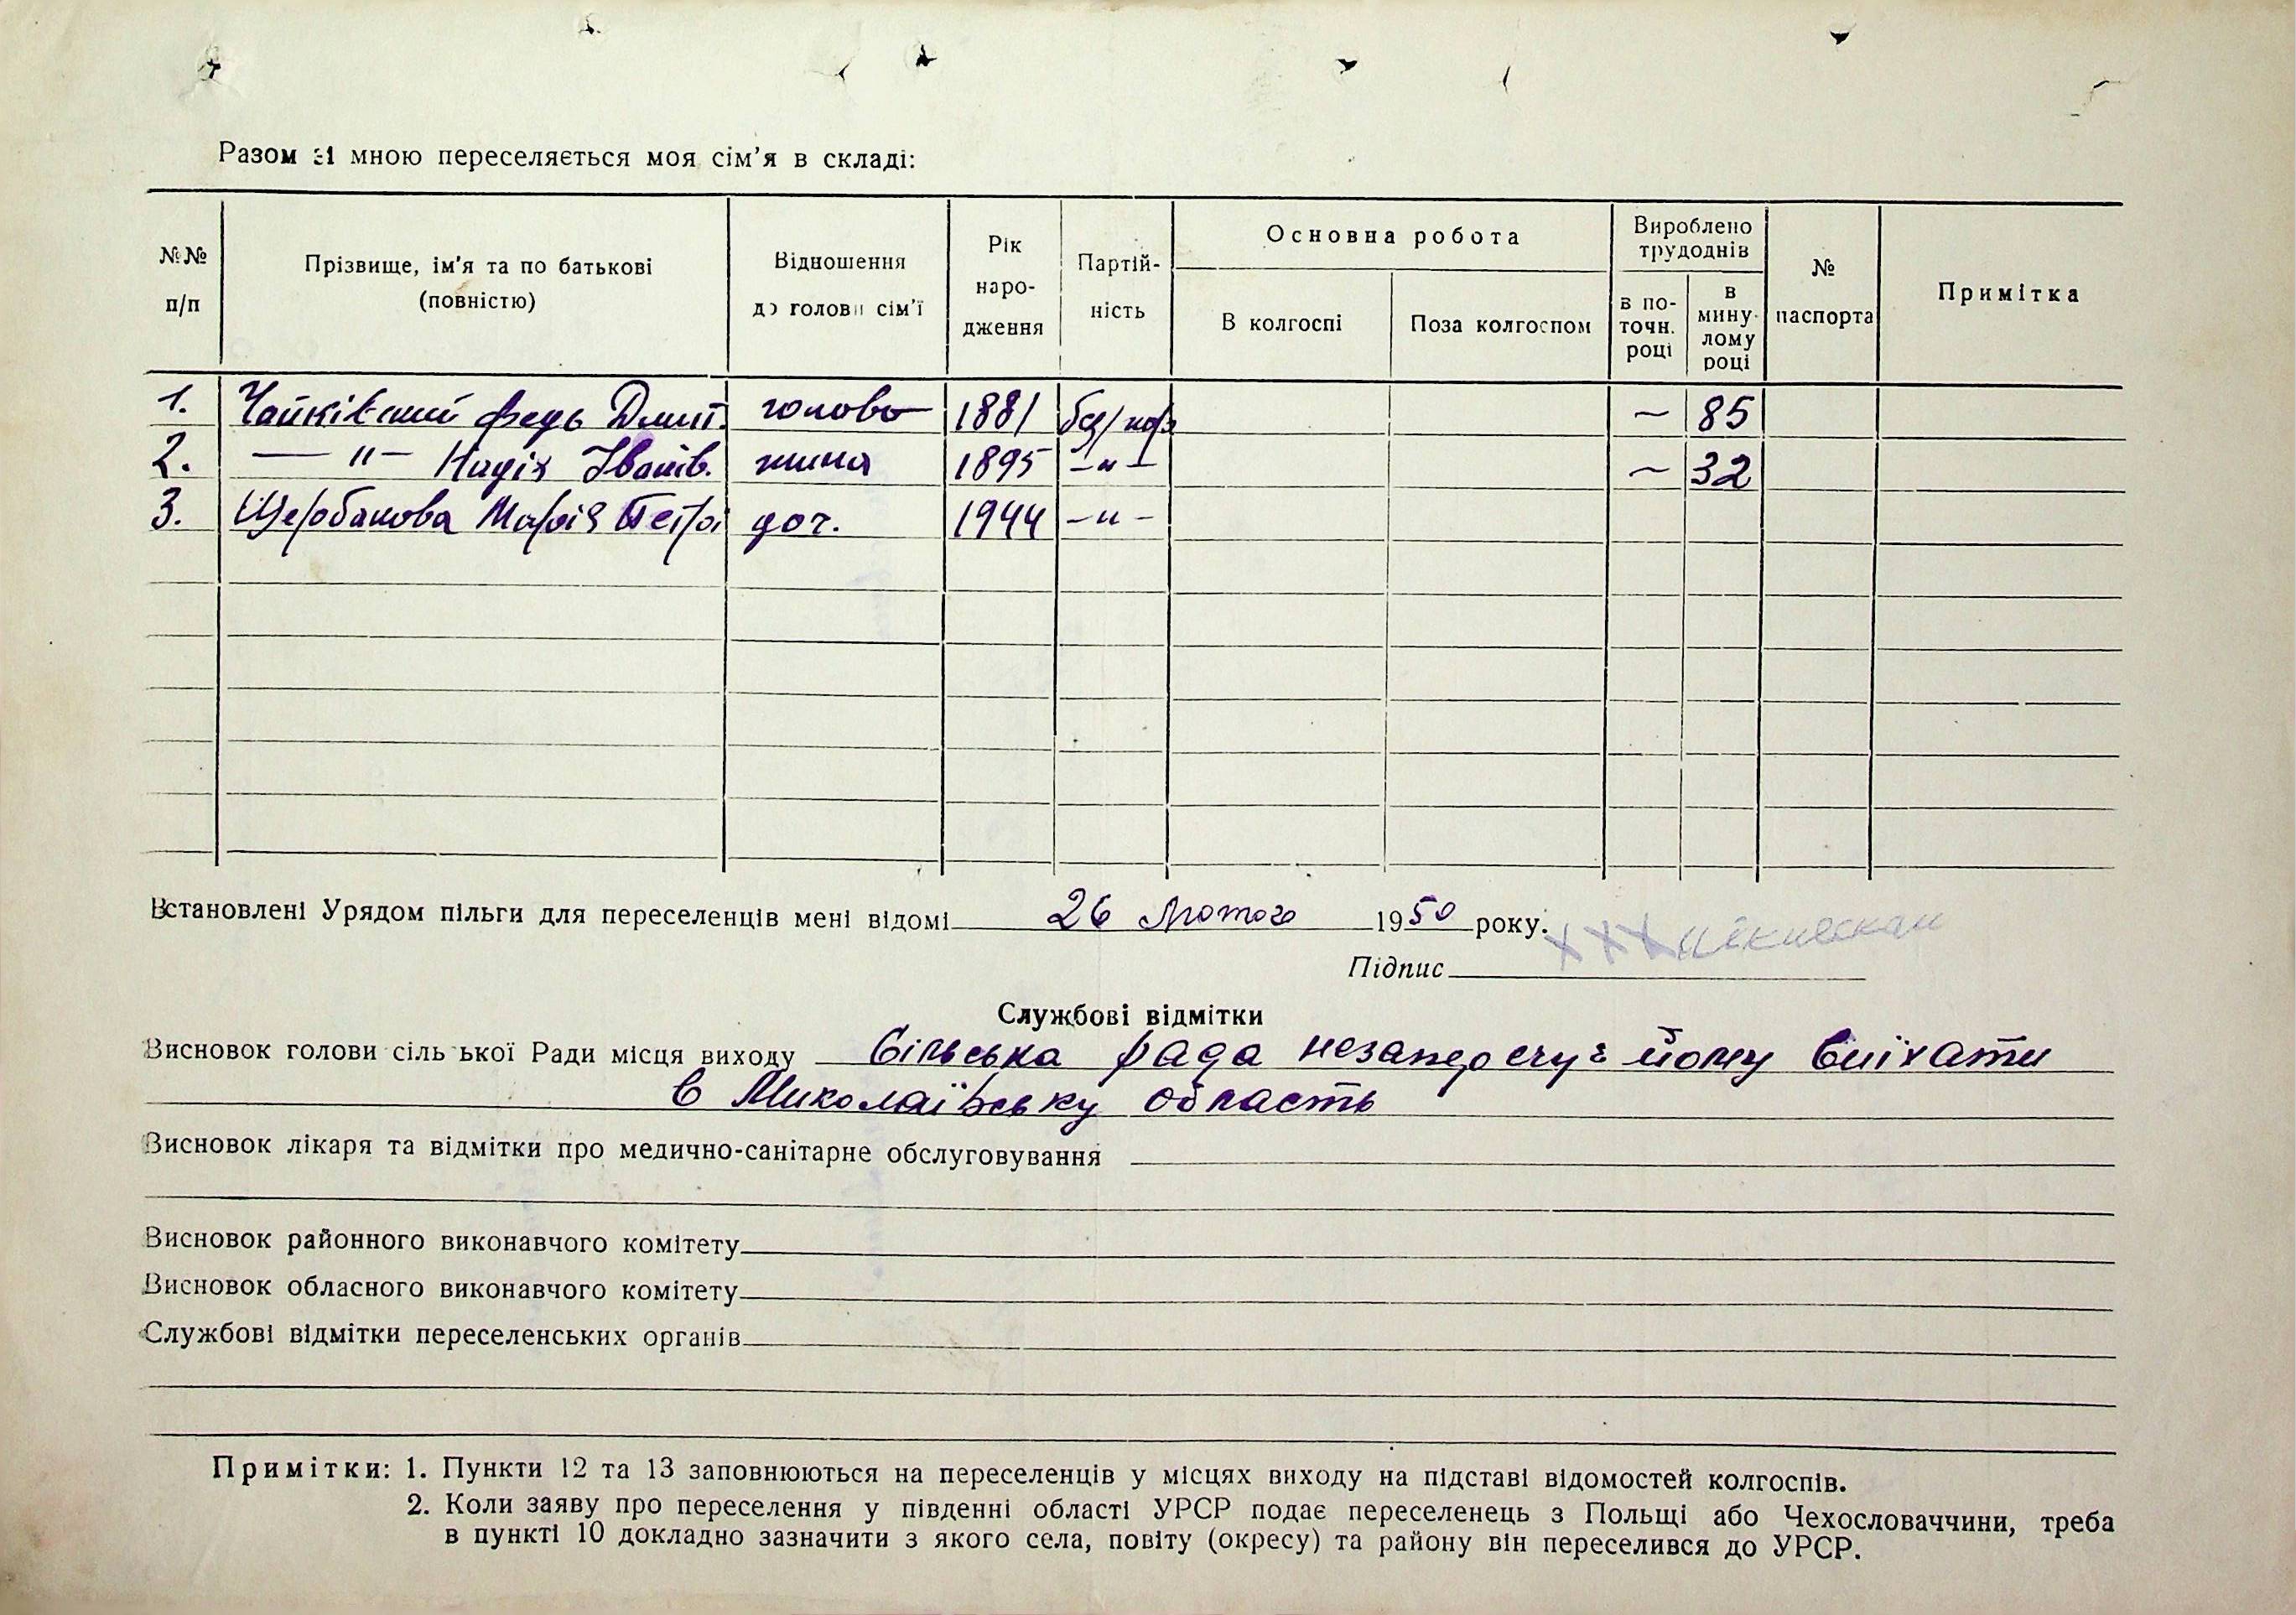 Разом зі мною переселяється моя сім'я в складі:
№№ п/п
Прізвище, ім'я та по батькові (повністю)
Відношення до голови сім'ї
Рік народження
Партійність
Основна робота
В колгоспі
Поза колгоспом
Вироблено трудоднів
в поточн. році
в минулому році
№ паспорта
Примітка
1. Чайківский Федь Дмит. голова 1881 без/пар ~ 85
2. — " — Надія Іванів. жина 1895 - " - ~ 32
3. Щербакова Марія Петрі доч. 1944 - " -
Встановлені Урядом пільги для переселенців мені відомі 26 Лютого 1950 року.
Підпис ХХХ
Службові відмітки
Висновок голови сільської Ради місця виходу Сільська рада незаперечує йому виїхати
в Миколаївську область
Висновок лікаря та відмітки про медично-санітарне обслуговування
Висновок районного виконавчого комітету
Висновок обласного виконавчого комітету
Службові відмітки переселенських органів
Примітки: 1. Пункти 12 та 13 заповнюються на переселенців у місцях виходу на підставі відомостей колгоспів.
2. Коли заяву про переселення у південні області УРСР подає переселенець з Польщі або Чехословаччини, треба
в пункті 10 докладно зазначити з якого села, повіту (окресу) та району він переселився до УРСР.